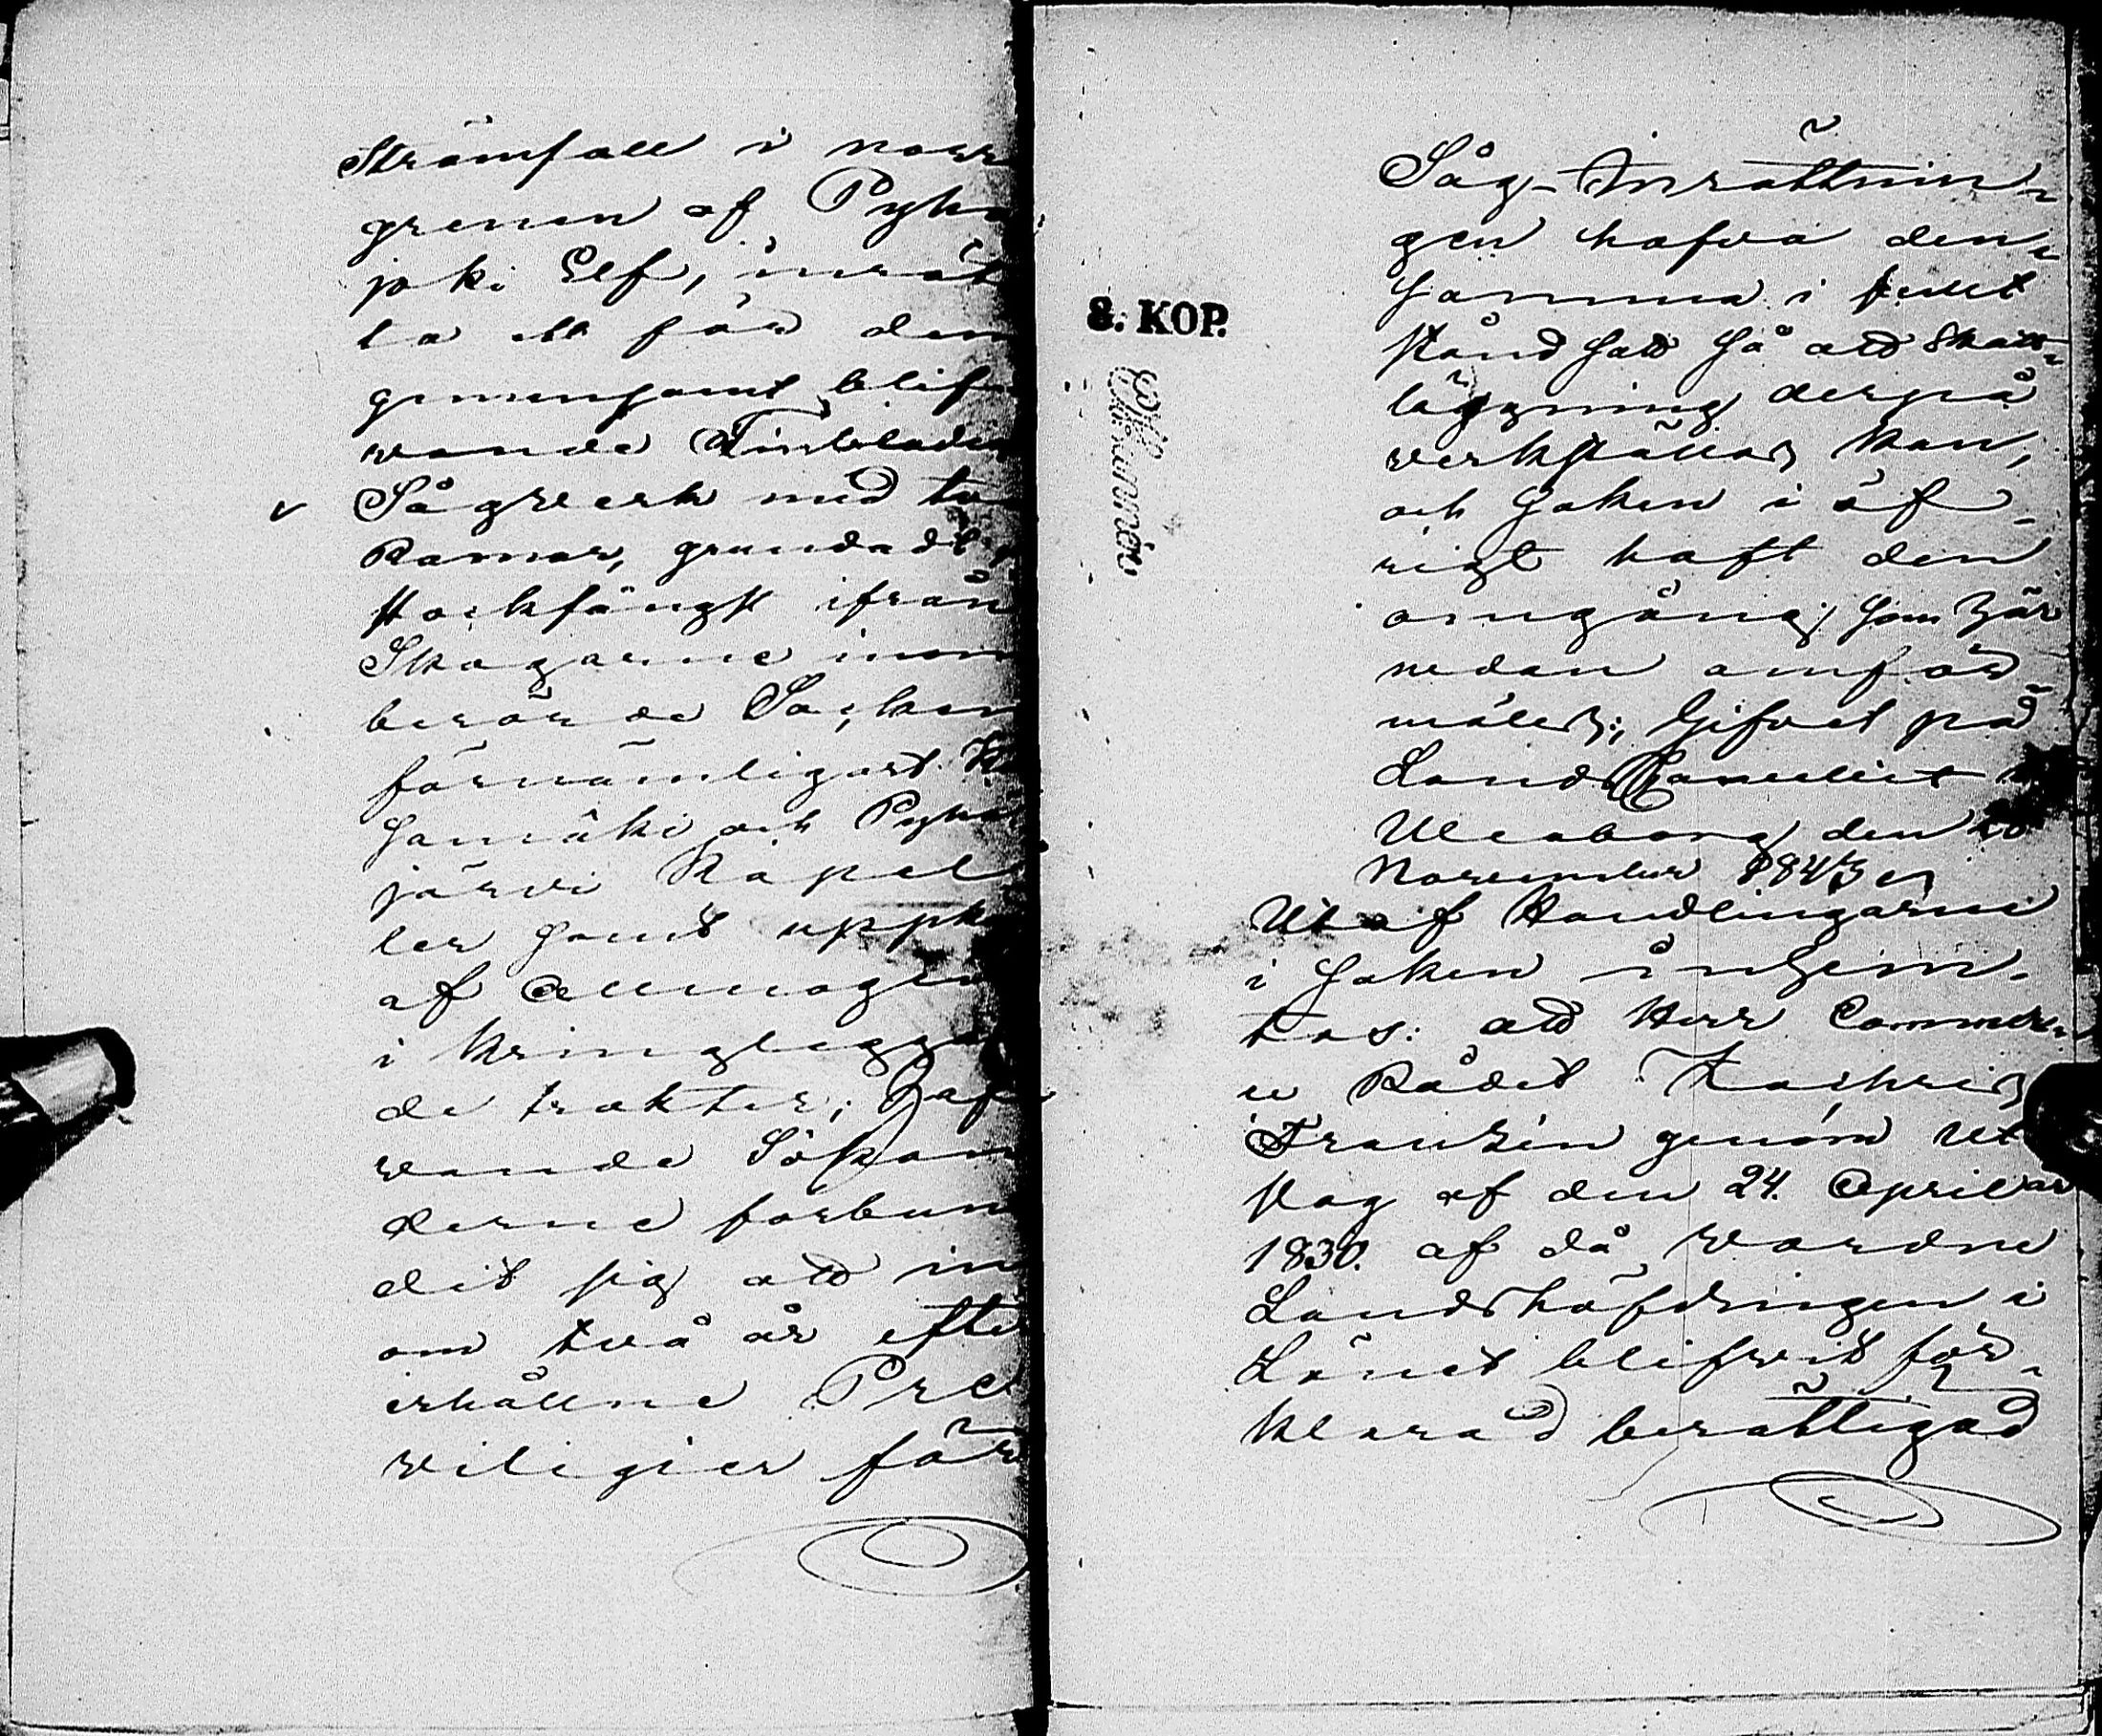 Strömfall i norr
grenen af Pyhä
joki Elf, inrät
ta ett för dem
gemensamt blif
wande Finbladig
Sågverk med två
Ramar, grundadt på
Stockfångst ifrån
Skogarne inom
berörde Socken
förnämligast
samäki och Pyhä
järvi Kapel
ler samt uppk
af Allmogen
i kringliggan
de trakter; haf
wande Sökan
derne förbun
dit sig att in
om två år efter
erhållne Pre
vilegier för
Såg-Inrättnin¬
gen hafva den¬
samma i fullt
stånd satt så att Skatt¬
läggning derpå
verkställas kan,
och saken i öf¬
rigt haft den
omgång, som här
nedan omför¬
mäles; Gifvet på
Lands Cancelliet i
Uleaborg den 20
November 1843
Utaf Handlingarne
i saken inhem¬
tas: att Herr Commer¬
ce Rådet Zachris
Franzén genom Ut¬
slag af den 24. April år
1830. af då warande
Landshöfdingen i
Länet blifwit för¬
klarad berättigad
8. KOP.